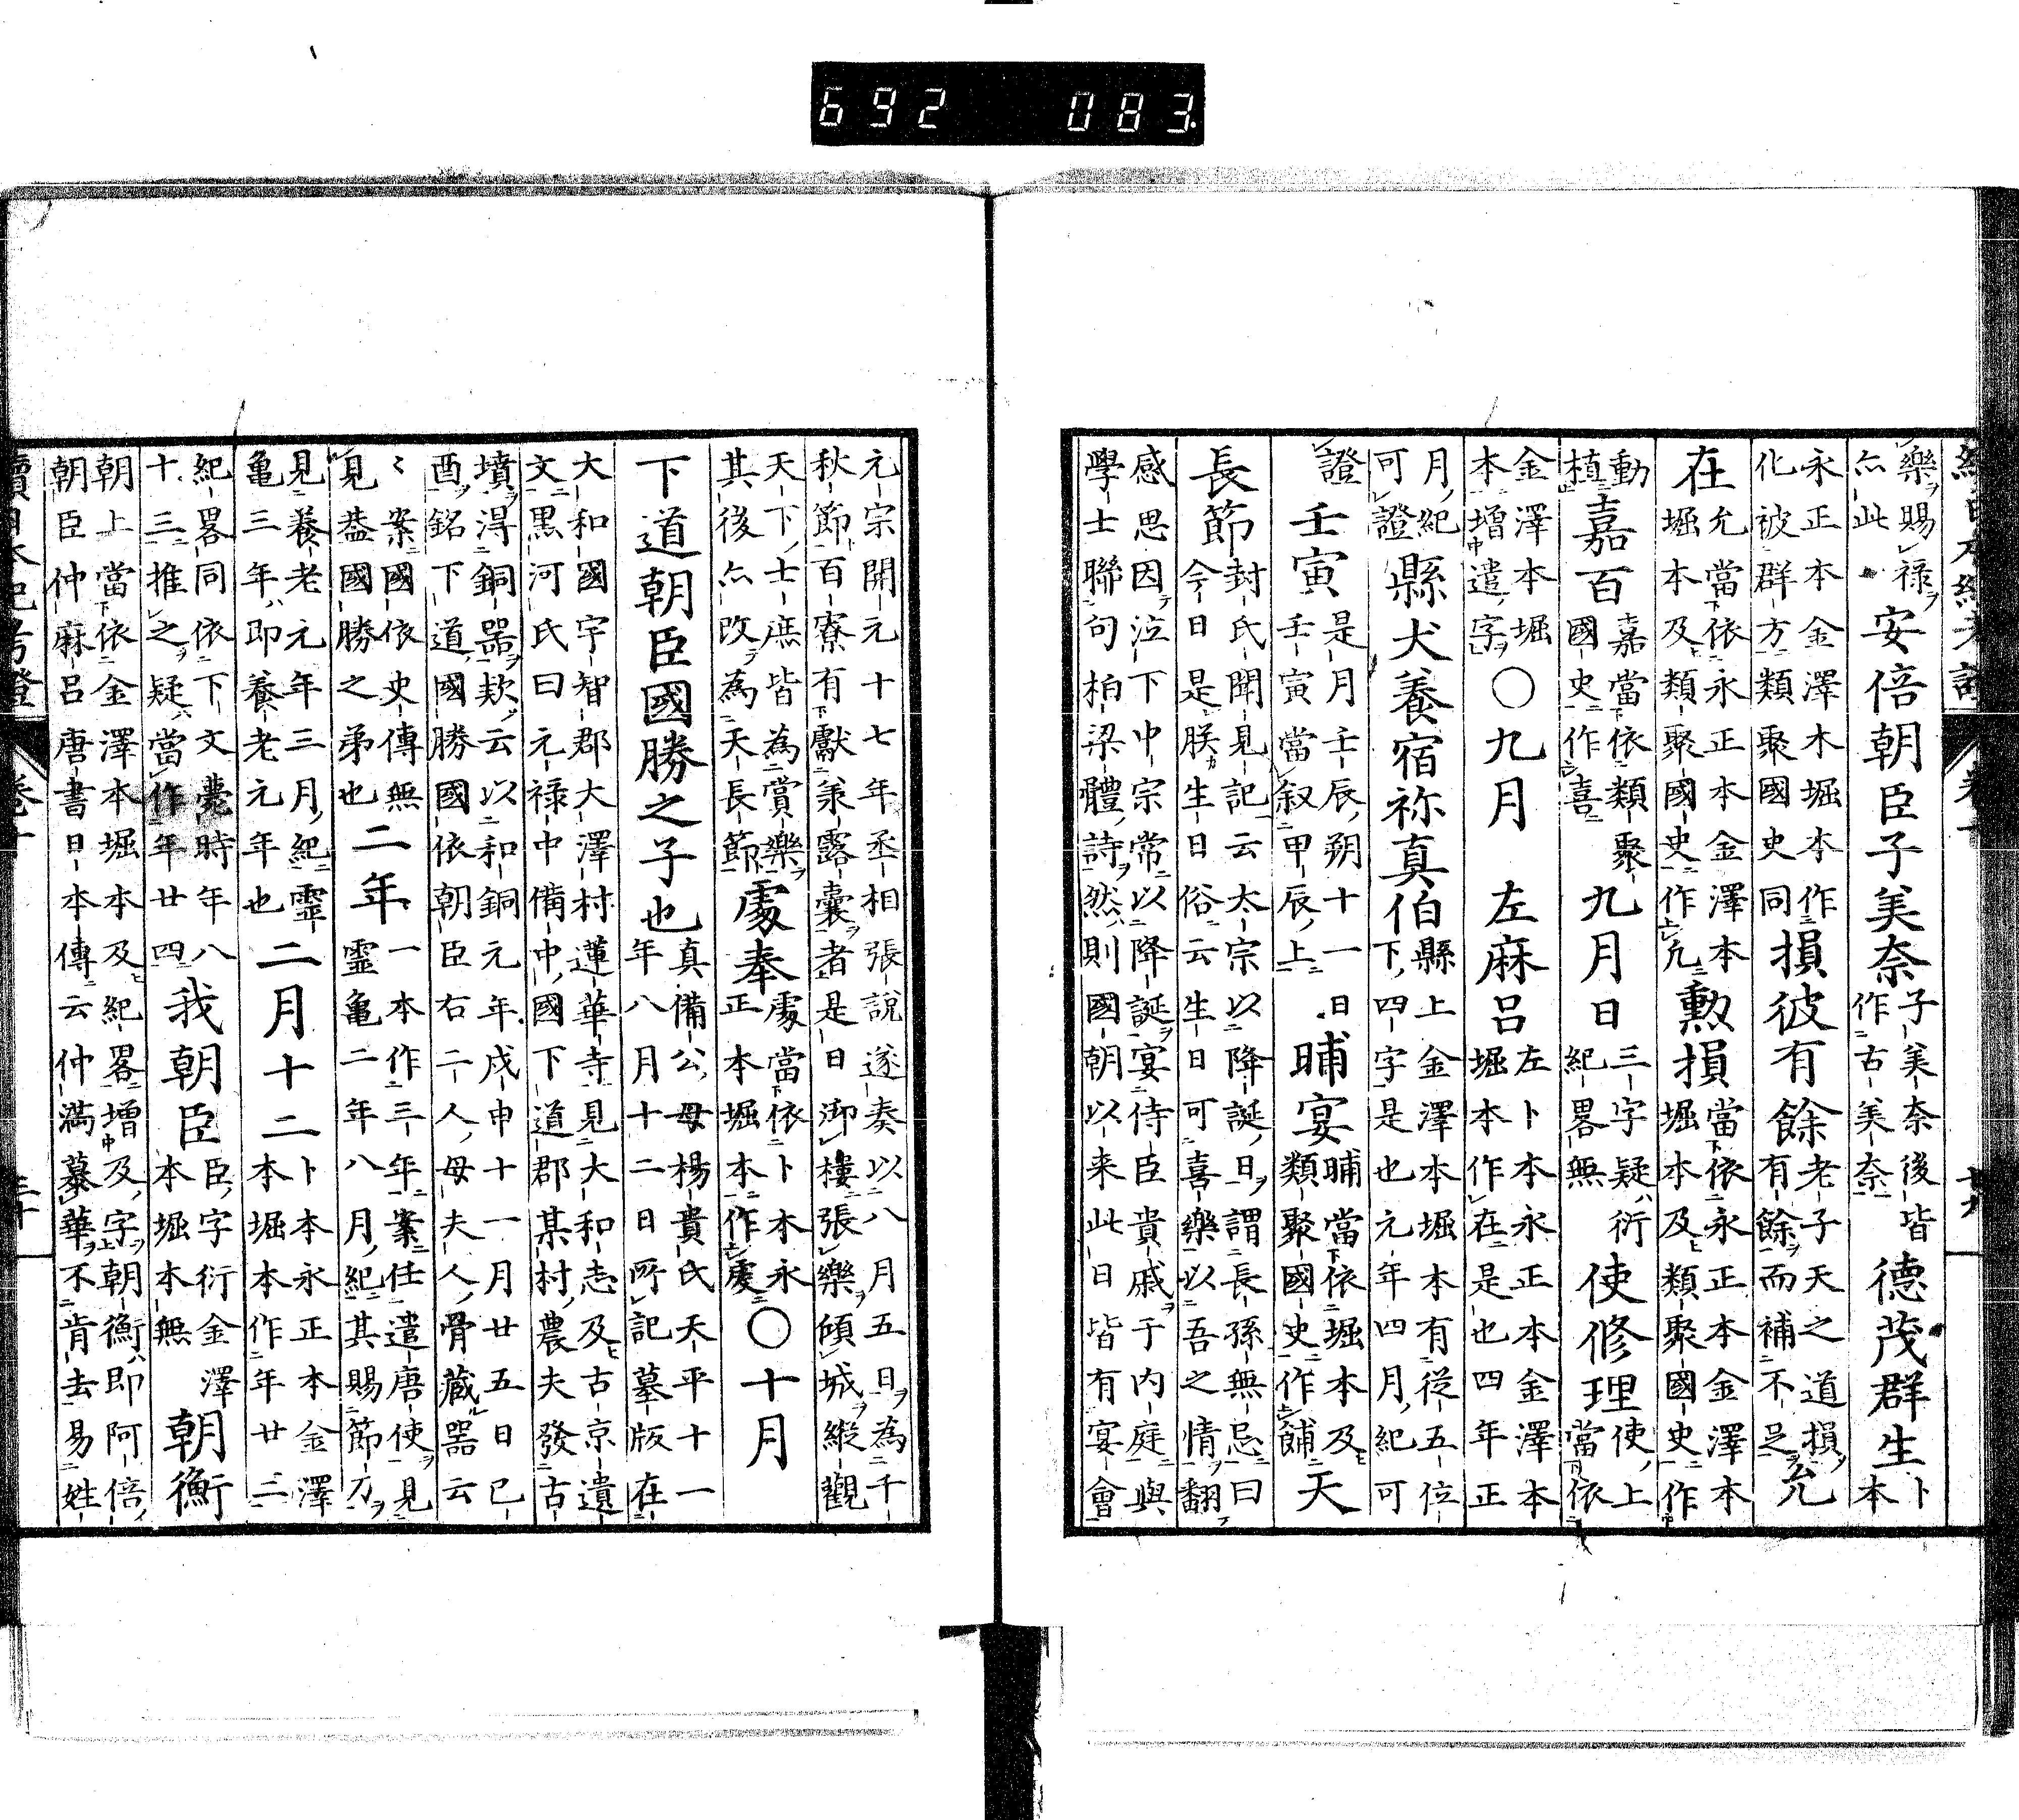 樂ヲ賜祿ヲ
亦此
安倍朝臣子美奈
子美奈後皆
作古美奈
德茂群生
卜
本
永正本金澤本堀本作
化被群方類聚國史同
損彼有餘
老子天之道損
有餘而補不足
允
在
允當依永正本金澤本
堀本及類聚國史作凢
勲損
當依永正本金澤本
堀本及類聚國史作
動
植
嘉百
嘉當依類聚
國史作喜
九月日
三字疑衍
紀畧無
使修理
使上
當依
金澤本堀
本增遣字
〇九月
左麻呂
左卜本永正本金澤本
堀本作在是也四年正
月紀
可證
縣犬養宿祢真伯
縣上金澤本堀本有從五位
下四字是也元年四月紀可
證
壬寅
是月壬辰朔十一日
壬寅當叙甲辰上
晡宴
晡當依堀本及
類聚國史作餔
天
長節
封氏聞見記云太宗以降誕日謂長孫無忌曰
今日是朕生日俗云生日可喜樂以吾之情翻
感思因泣下中宗常以降誕宴侍臣貴戚于内庭與
學士聯句柏梁體詩然則國朝以来此日皆有宴會
元宗開元十七年丞相張說遂奏以八月五日為千
秋節百寮有獻兼露囊者是日御樓張樂傾城縱觀
天下士庶皆為賞樂
其後亦改為天長節
䖏奉
䖏當依卜本永
正本堀本作虔
〇十月
下道朝臣國勝之子也
真備公母楊貴氏天平十一
年八月十二日所記墓版在
大和國宇智郡大澤村蓮華寺見大和志及古京遺
文黒河氏曰元禄中備中國下道郡某村農夫發古
墳淂銅噐欵云以和銅元年戊申十一月廿五日已
酉銘下道國勝國依朝臣右二人母夫人骨藏噐云
〻案國依史傳無
見葢國勝之弟也
二年
一本作三年案任遣唐使見
靈亀二年八月紀其賜節刀
見養老元年三月紀靈
亀三年即養老元年也
二月十二
卜本永正本金澤
本堀本作年廿三
紀畧同依下文薨時年八
十三推之疑當作年廿四
我朝臣
臣字衍金澤
本堀本無
朝衡
朝上當依金澤本堀本及紀畧增及字朝衡即阿倍
朝臣仲麻呂唐書日本傳云仲満慕華不肯去易姓
續日本紀考證
卷十
三十